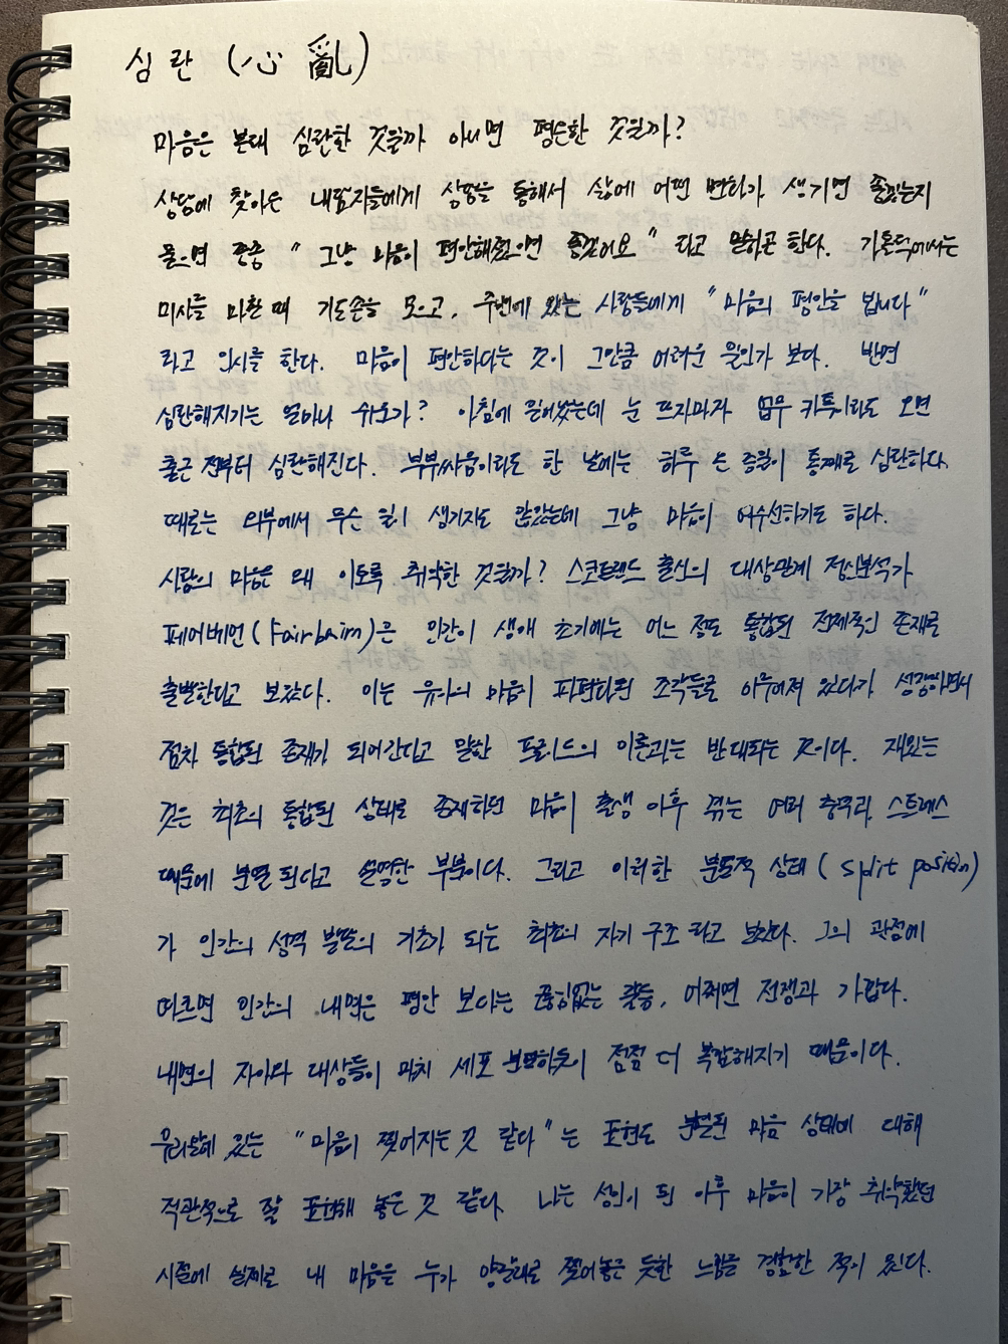 심란 (心亂)
마음은 본래 심란한 것일까 아니면 평온한 것일까?
상담에 찾아온 내담자들에게 상담을 통해서 삶에 어떤 변화가 생기면 좋겠는지
물으면 종종 " 그냥 마음이 편안해졌으면 좋겠어요 " 라고 말하곤 한다. 가톨릭에서는
미사를 마칠 때 기도손을 모으고, 주변에 있는 사람들에게 " 마음의 평안을 빕니다 "
라고 인사를 한다. 마음이 편안하다는 것이 그만큼 어려운 일인가 보다. 반면
심란해지기는 얼마나 쉬운가? 아침에 일어났는데 눈 뜨자마자 업무 카톡이라도 오면
출근 전부터 심란해진다. 부부싸움이라도 한 날에는 하루 온 종일이 통째로 심란하다.
때로는 외부에서 무슨 일이 생기지도 않았는데 그냥 마음이 어수선하기도 하다.
사람의 마음은 왜 이토록 취약한 것일까? 스코틀랜드 출신의 대상관계 정신분석가
페어베언(Fairbairn)은 인간이 생애 초기에는 어느 정도 통합된 전체적인 존재로
출발한다고 보았다. 이는 유아의 마음이 파편화된 조각들로 이루어져 있다가 성장하면서
점차 통합된 존재가 되어간다고 말한 프로이드의 이론과는 반대되는 것이다. 재밌는
것은 최초의 통합된 상태로 존재하던 마음이 출생 이후 겪는 여러 충격과 스트레스
때문에 분열 된다고 설명한 부분이다. 그리고 이러한 분열적 상태 ( split position)
가 인간의 성격 발달의 기초가 되는 최초의 자기 구조 라고 보았다. 그의 관점에
따르면 인간의 내면은 평안 보다는 끊임없는 갈등, 어쩌면 전쟁과 가깝다.
내면의 자아와 대상들이 마치 세포 분열하듯이 점점 더 복잡해지기 때문이다.
우리말에 있는 " 마음이 찢어지는 것 같다 " 는 표현도 분열된 마음 상태에 대해
직관적으로 잘 표현해 놓은 것 같다. 나는 성인이 된 이후 마음이 가장 취약했던
시절에 실제로 내 마음을 누가 양갈래로 찢어놓은 듯한 느낌을 경험한 적이 있다.